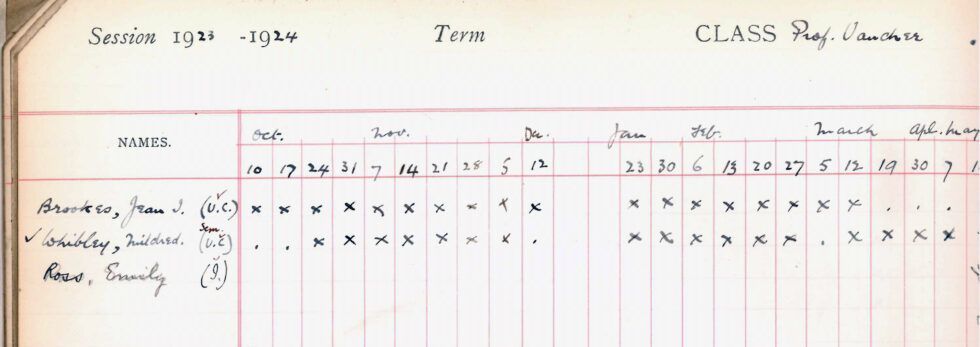 Session 1923 -1924 Term CLASS Prof. Vaucher
NAMES. Oct. Nov. Dec. Jan Feb. March Apl. May
10 17 24 31 7 14 21 28 5 12 23 30 6 13 20 27 5 12 19 30 7
Brookes, Jean I. (U.C.) x x x x x x x x x x x x x x x x x x . . .
Sem.
✓ Whibley, Mildred. (U.C) . . x x x x x x x . x x x x x x . x x x x
Ross, Emily (I.)